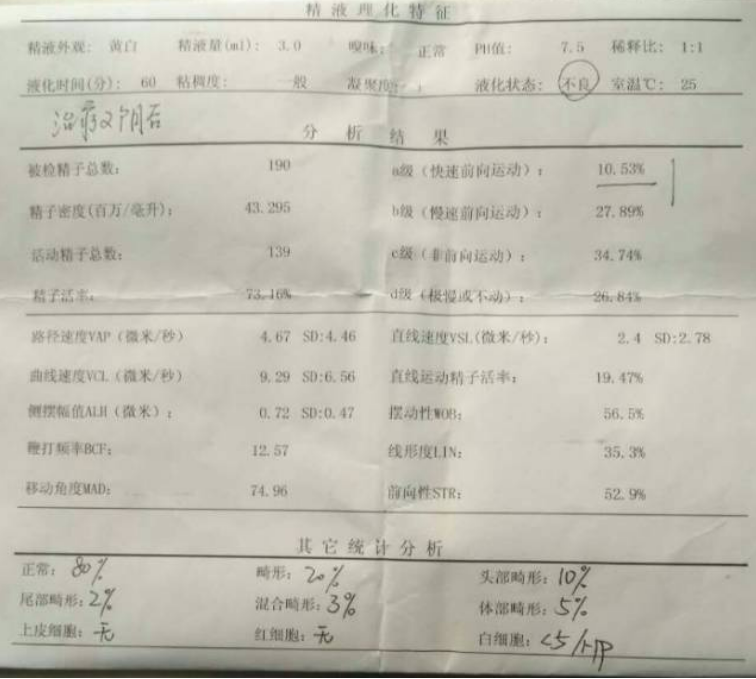 精液理化特征
精液外观: 黄白 精液量(ml): 3.0 嗅味: 正常 PH值: 7.5 稀释比: 1:1
液化时间(分): 60 粘稠度: 一般 凝聚度 液化状态: 不良 室温℃: 25
治疗2个月后
分析结果
被检精子总数: 190 a级(快速前向运动): 10.53%
精子密度(百万/毫升): 43.295 b级(慢速前向运动): 27.89%
活动精子总数: 139 c级(非前向运动): 34.74%
精子活率: 73.16% d级(极慢或不动): 26.84%
路径速度VAP(微米/秒) 4.67 SD:4.46 直线速度VSL(微米/秒): 2.4 SD:2.78
曲线速度VCL(微米/秒) 9.29 SD:6.56 直线运动精子活率: 19.47%
侧摆幅值ALH(微米): 0.72 SD:0.47 摆动性WOB: 56.5%
鞭打频率BCF: 12.57 线形度LIN: 35.3%
移动角度MAD: 74.96 前向性STR: 52.9%
其它统计分析
正常: 80% 畸形: 20% 头部畸形: 10%
尾部畸形: 2% 混合畸形: 3% 体部畸形: 5%
上皮细胞: 无 红细胞: 无 白细胞: <5/HP